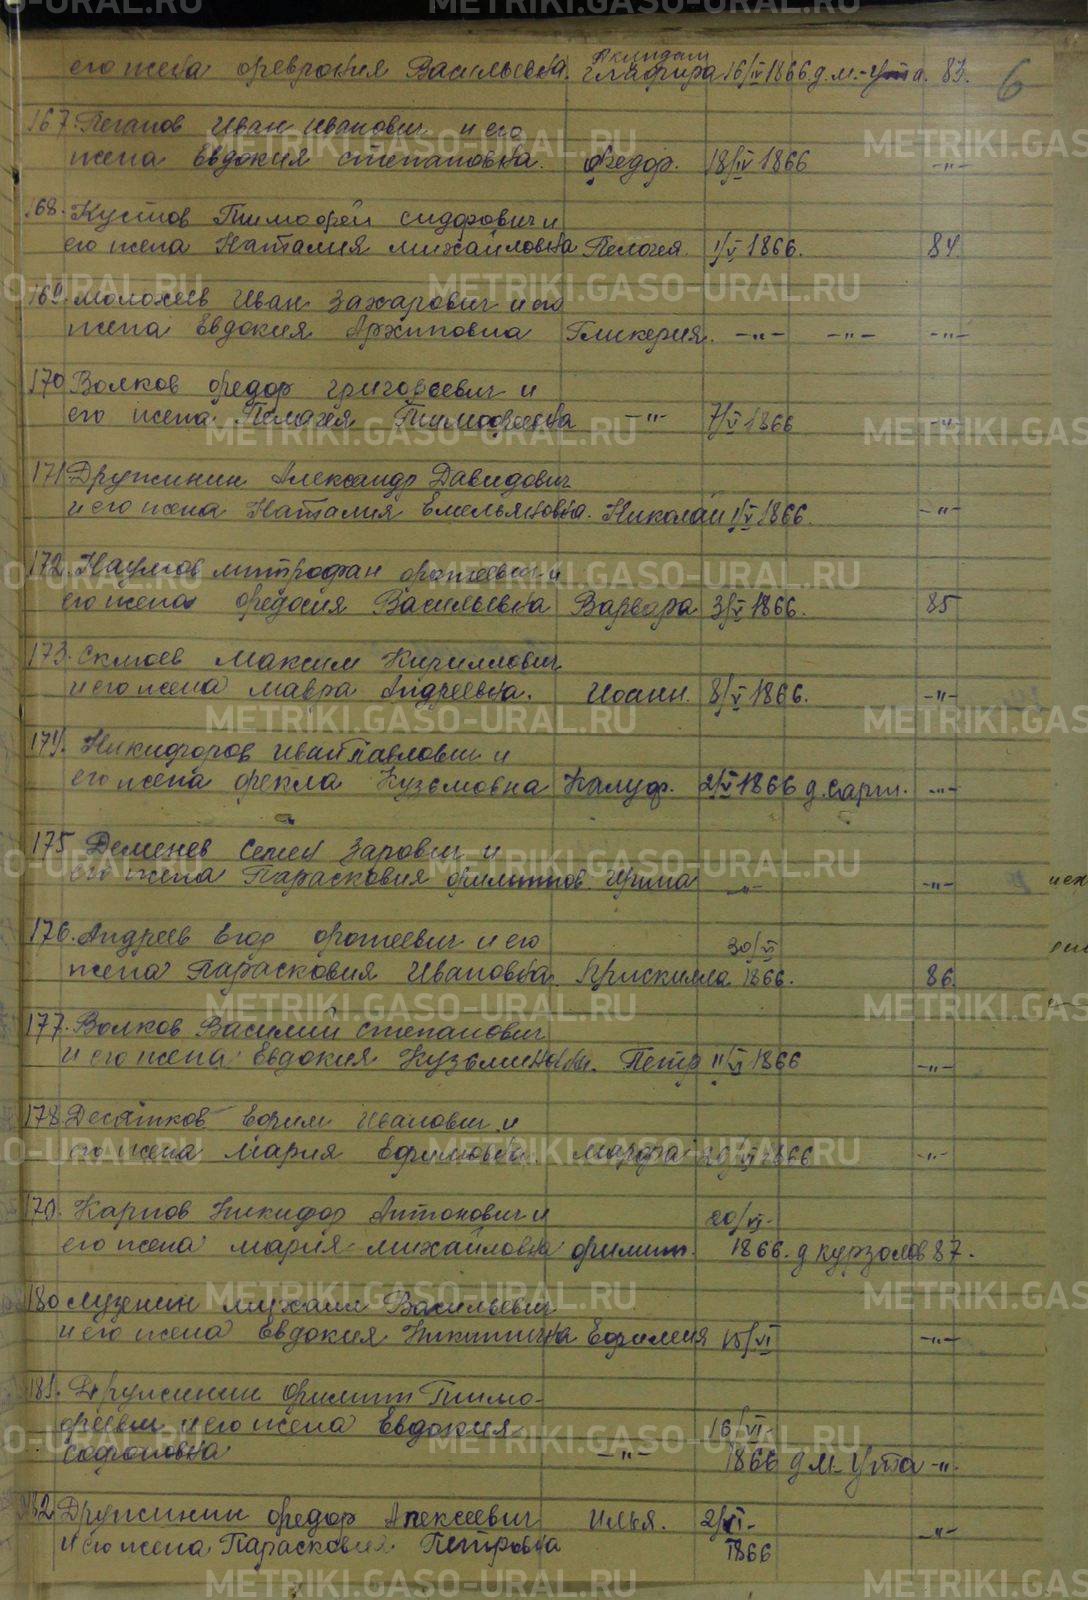 его жена Феврония Васильевна. Глафира 16/IV 1866. д. М.-Ута. 83. 6
167. Пеганов Иван Иванович и его
жена Евдокия Степановна. Федор. 18/IV 1866 -"-
168. Кустов Тимофей Сидорович и
его жена Наталия Михайловна Пелагея 1/V 1866. 84.
169. Молокеев Иван Захарович и его
жена Евдокия Архиповна Гликерия. -"- -"- -"-
170 Волков Федор Григорьевич и
его жена Пелагея Тимофеевна -"- 7/V 1866 -"-
171 Дружинин Александр Давидович
и его жена Наталия Емельяновна. Николай 1/V 1866. -"-
172. Наумов Митрофан Фотеевич и
его жена Федосия Васильевна Варвара 3/V 1866. 85
173. Максим Кириллович
и его жена Мавра Андреевна. Иоанн. 8/V 1866. -"-
174. Никифоров Иван Павлович и
его жена Фекла Кузьмовна Калуф. 2/V 1866 д. Сарт. -"-
175 Деменев Семен Зарович и
его жена Парасковия Филиппов. Ирина -"- -"-
176. Андреев Егор Фотеевич и его 30/VI
жена Парасковия Ивановна. Прискилла 1866. 86.
177. Волков Василий Степанович
и его жена Евдокия Кузьминовн. Петр 11/VI 1866 -"-
178 Десятков Ефим Иванович и
его жена Мария Ефимовна. Марфа 1866 -"-
179. Карпов Никифор Антонович и 20/VI-
его жена Мария Михайловна Филипп. 1866. д Курзолов 87.
180 Лузенин Михаил Васильевич
и его жена Евдокия Никитична Ефимия 15/VI -"-
181. Дружинин Филипп Тимо-
феевич и его жена Евдокия 16/VI-
Софоновна -"- 1866 д М-Ута -"-
182 Дружинин Федор Алексеевич Илья. 2/VI-
и его жена Парасковия Петровна 1866 -"-
METRIKI.GASO-URAL.RU